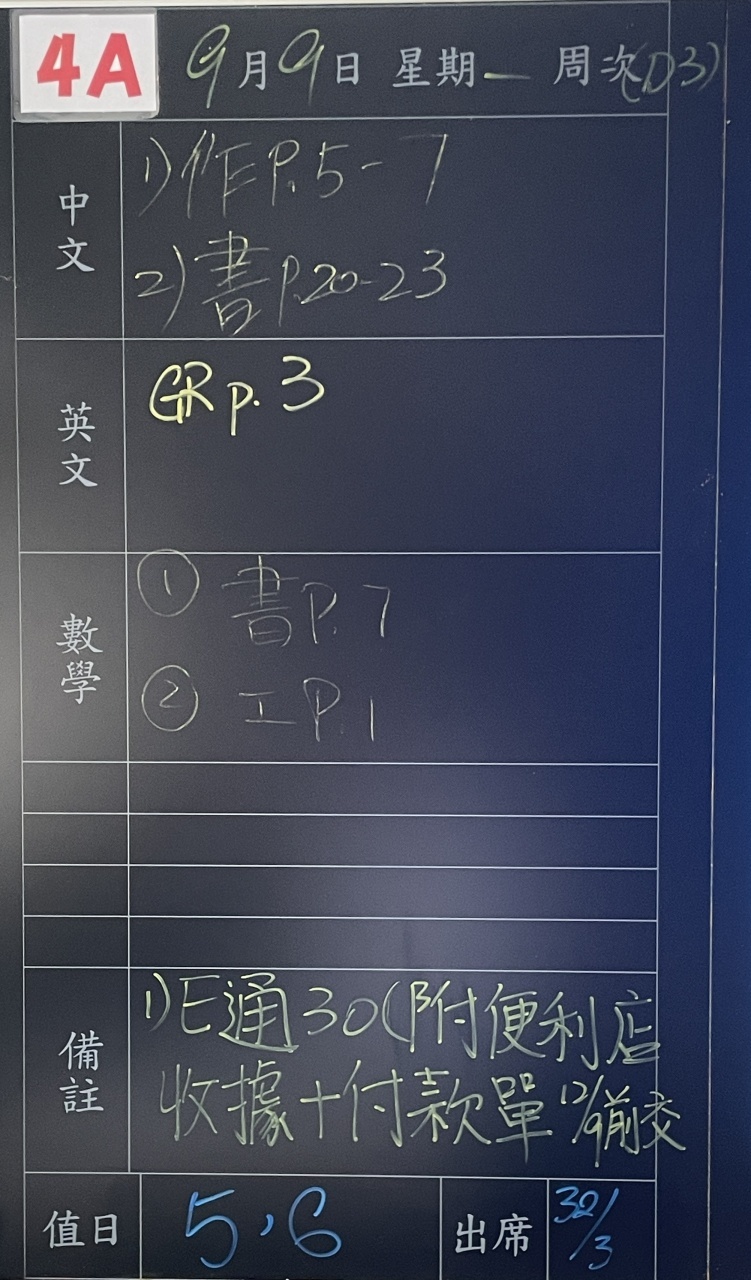 4A 9月9日 星期一 周次(D3)
中文
1)作P.5-7
2)書P.20-23
英文
GR p.3
數學
① 書P.7
② 工P.1
備註
1)E通30(附便利店
收據+付款單 12/9前交
值日 5,6 出席 32/3